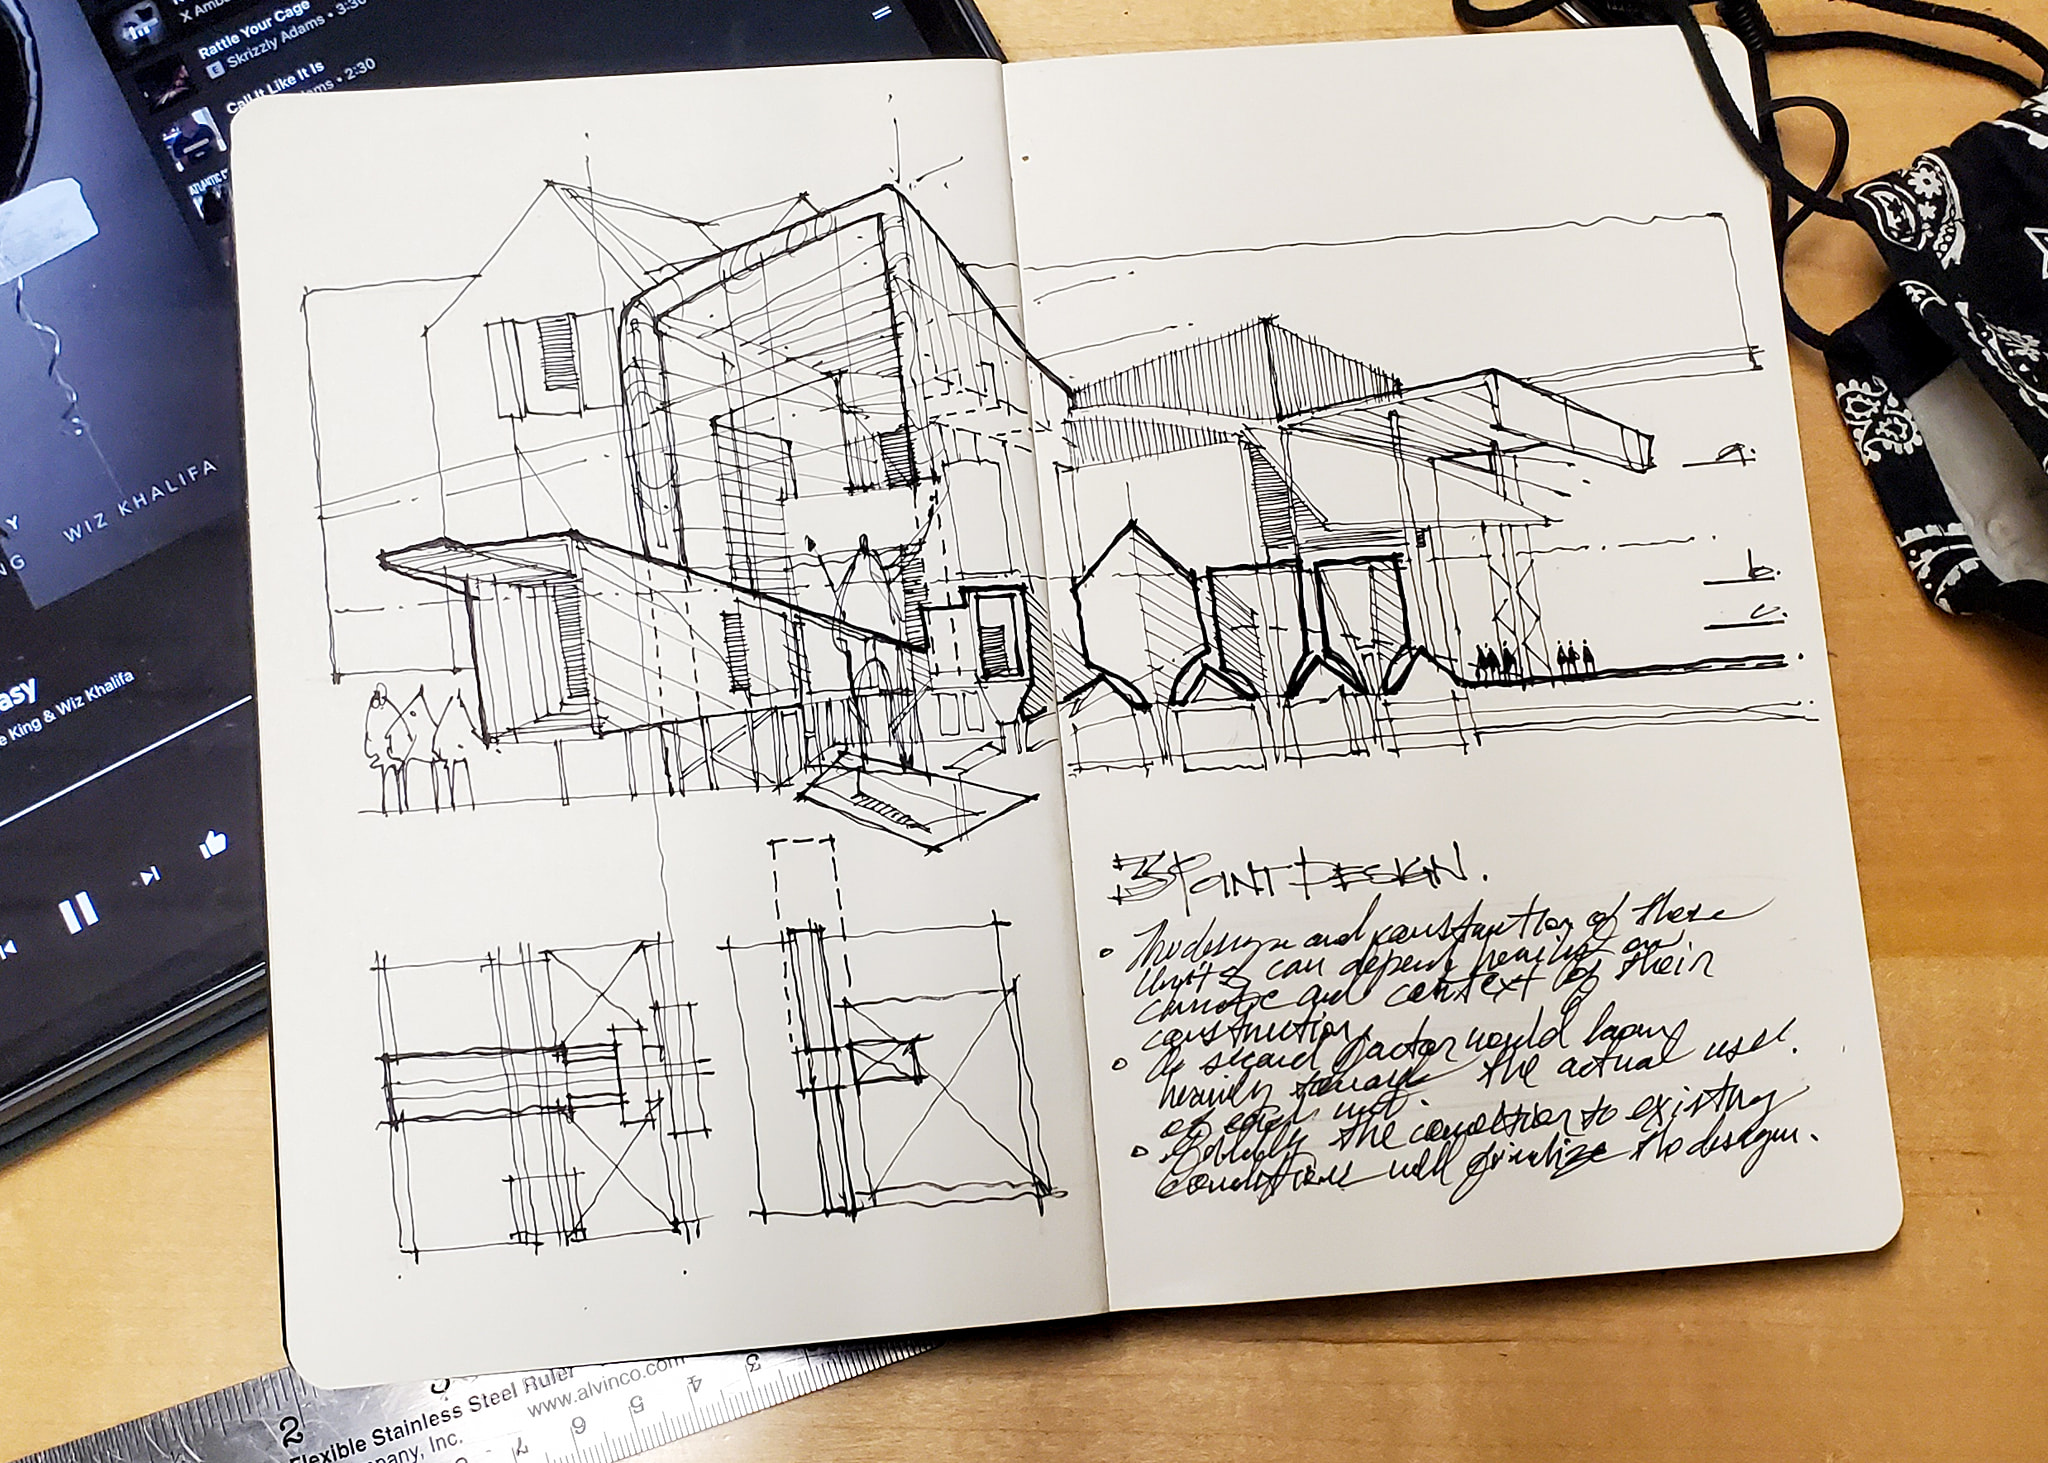 X Amb
Rattle Your Cage
E Skrizzly Adams • 3:30
Call It Like It Is
ams • 2:30
ATLANTIC
Y
NG
WIZ KHALIFA
asy
e King & Wiz Khalifa
a.
b.
c.
3 POINT DESIGN.
• The design and construction of these
units can depend heavily on
climate and context of their
construction.
• A second factor would lean
heavily toward the actual user.
of each unit.
• the condition to existing
conditions will finalize the design.
2
3
Flexible Stainless Steel Ruler
www.alvinco.com
pany, Inc.
3
4
5
6
7